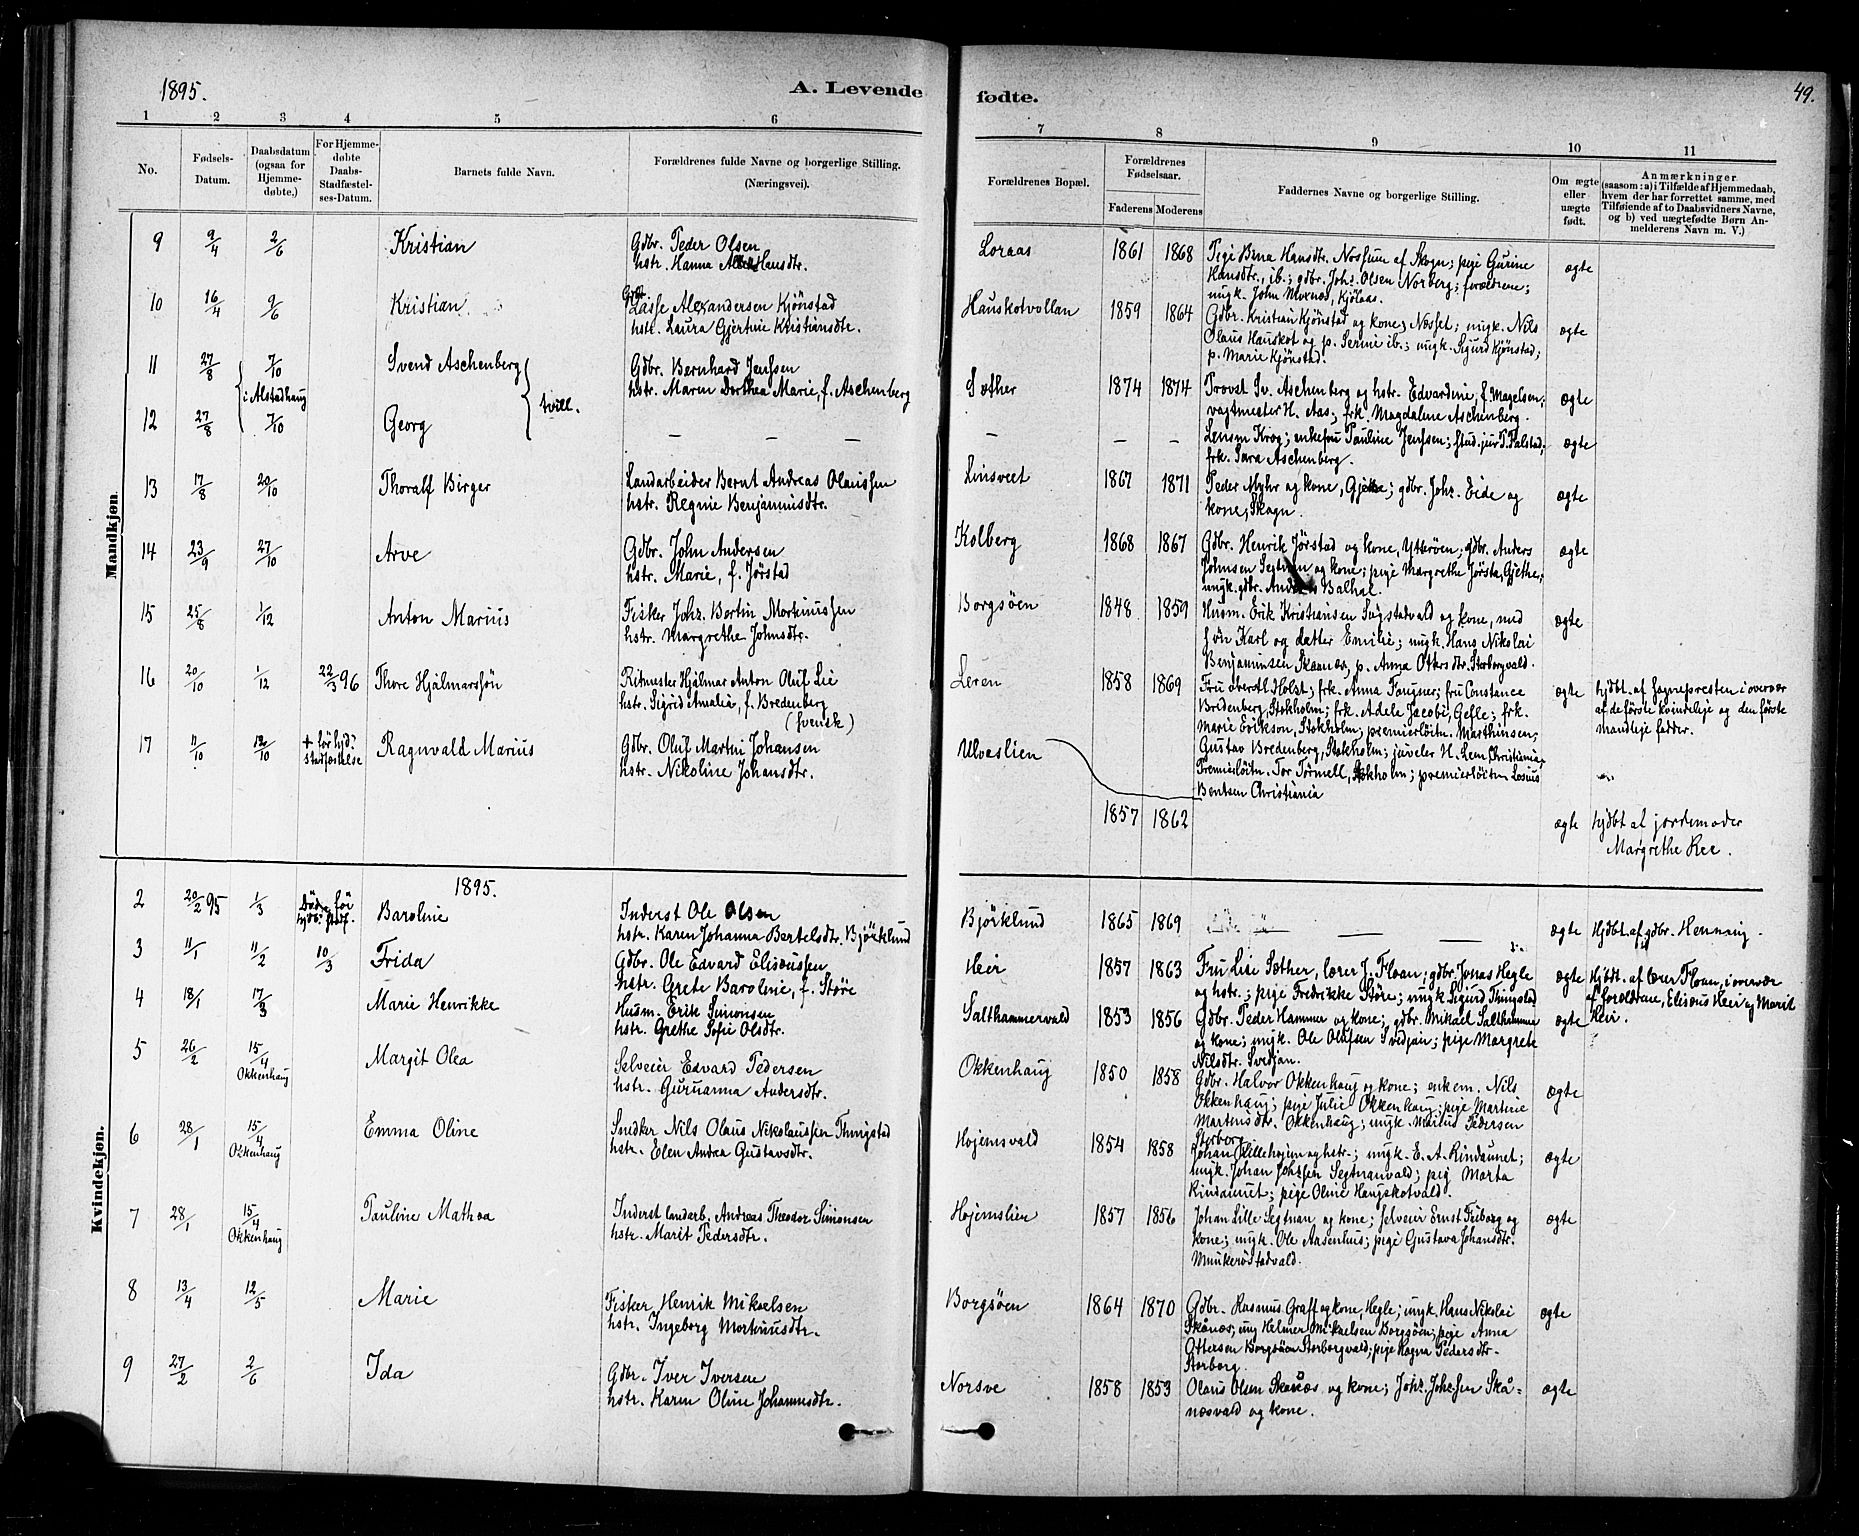 1895.
A. Levende fødte.
49.
1 2 3 4 5 6 7 8 9 10 11
No.
Fødsels-Datum.
Daabsdatum (ogsaa for Hjemmedøbte.)
For Hjemmedøbte Daabs-Stadfæstelses-Datum.
Barnets fulde Navn.
Forældrenes fulde Navne og borgerlige Stilling. (Næringsvei).
Forældrenes Bopæl.
Forældrenes Fødselsaar.
Faderens Moderens
Faddernes Navne og borgerlige Stilling.
Om ægte eller uægte født.
Anmærkninger
(saasom: a) i Tilfælde af Hjemmedaab,
hvem der har forrettet samme, med
Tilføiende af to Daabsvidners Navne,
og b) ved uægtefødte Børn An-
melderens Navn m. V.)
Mandkjøn.
9 9/4 2/6 Kristian
Gdbr. Peder Olsen
hstr. Hanna Hansdtr.
Loraas 1861 1868
Pige Berna Hansdtr. Nossum af Skogn; pige Gurine
Hansdtr., ib.; gdbr. Johs. Olsen Norberg; forældrene;
ungk. John Moxnæs, Kjölaas.
ægte
10 16/4 9/6 Kristian
Gdbr. Lasse Alexandersen Kjönstad
hstr. Laura Gjertine Kristiansdtr.
Hauskotvollan 1859 1864
Gdbr. Kristian Kjönstad og kone, Nesset; ungk. Nils
Olaus Hauskot og p. Serine ib.; ungk. Sigurd Kjönstad;
p. Marie Kjönstad.
ægte
11 27/8 7/10 Svend Aschenberg
Gdbr. Bernhard Jenssen
hstr. Maren Dorthea Marie, f. Aschenberg
i Alstadhaug
tvill.
Sæther 1874 1874
Provst Sv. Aschenberg og hstr. Edvardine, f. Magelsen;
vagtmester H. Aas; frk. Magdalene Aschenberg.
ægte
12 27/8 7/10 Georg
— — —
— — —
Lensm. Krog; enkefru Pauline Jenssen; stud. jur. P. Palstad;
frk. Sara Aschenberg.
ægte
13 17/8 20/10 Thoralf Birger
Landarbeider Bernt Andreas Olaussen
hstr. Regine Benjaminsdtr.
Linsveet 1867 1871
Peder Myhr og kone, ; gdbr. Johs. Eide og
kone, Skogn.
ægte
14 23/9 27/10 Arve
Gdbr. John Andersen
hstr. Marie, f. Jörstad
Kolberg 1868 1867
Gdbr. Henrik Jörstad og kone, Ytteröen; gdbr. Anders
Johnsen Segtnan og kone; pige Margrethe Jörstad, Gjethe;
ungk. gdbr. Anders Balhal.
ægte
15 25/8 1/12 Anton Marius
Fisker Johs. Bertin Mortinussen
hstr. Margrethe Johnsdtr.
Borgsöen 1848 1859
Husm. Erik Kristiansen Sugstadvald og kone, med
sön Karl og datter Emilie; ungk. Hans Nikolai
Benjaminsen Skaanæs, p. Anna Ottersdtr. Storborgvald.
ægte
16 20/10 1/12 22/3 96 Thore Hjalmarssön
Ritmester Hjalmar Anton Oluf Lie
hstr. Sigrid Amalia, f. Bredenberg
(svensk)
Leren 1858 1869
Fru oberstl. Holst; frk. Anna Faugner; fru Constance
Bredenberg, Stokholm; frk. Adele Jacobi, Gefle; frk.
Marie Erikson, Stokholm; premierlöitn. Marthinsen;
Gustav Bredenberg, Stokholm; juveler H. Lem Christiania;
Premierlöitn. Tor Törnell, Stokholm; premierlöitn. Losius
Bentsen Christiania
ægte
hjdbt. af sognepresten i overvær
af de förste kvindelige og den förste
mandlige fadder.
17 11/10 12/10 + för hjd. stadfæstelse Ragnvald Marius
Gdbr. Oluf Martin Johansen
hstr. Nikoline Johansdtr.
Ulveslien
1857 1862
ægte
hjdbt af jordemoder
Margrethe Ree.
Kvindekjøn.
1895.
2 20/2 95 1/3 Död för hjdb. stadf. Baroline
Inderst Ole Olsen
hstr. Karen Johanna Bertelsdtr. Björklund
Björklund 1865 1869
— —
ægte
Hjdbt. af gdbr. Henning.
3 11/1 11/2 10/3 Frida
Gdbr. Ole Edvard Elisæussen
hstr. Grete Baroline, f. Störe
Heir 1857 1863
Fru Lise Sæther, lærer J. Floan; gdbr. Jonas Hegle
og hstr.; pige Fredrikke Störe; ungk. Sigurd Thingstad
ægte
Hjdbt. af lærer Floan, i overvær
af forældrene, Elisæus Heir og Marit
Heir.
4 18/1 17/3 Marie Henrikke
Husm. Erik Simonsen
hstr. Grethe Sofie Olsdtr.
Salthammervald 1853 1856
Gdbr. Peder Hammer og kone; gdbr. Mikael Salthammer
og kone; ungk. Ole Olufsen Svedjan; pige Margrete
Nilsdtr. Svedjan.
ægte
5 26/2 15/4 Okkenhaug Margit Olea
Selveier Edvard Pedersen
hstr. Guruanna Andersdtr.
Okkenhaug 1850 1858
Gdbr. Halvor Okkenhaug og kone; enkem. Nils
Okkenhaug; pige Julie Okkenhaug; pige Martine
Martinsdtr. Okkenhaug; ungk. Marius Pedersen
Storborg
ægte
6 28/1 15/4 Okkenhaug Emma Oline
Snedker Nils Olaus Nikolaussen Thingstad
hstr. Elen Andrea Gustavsdtr.
Hojemsvald 1854 1858
Johan Lillehojem og hstr.; ungk. E. A. Rindaunet;
ungk. Johan Johsen Segtnanvald; pige Marta
Rindaunet; pige Oline Haugskotvald.
ægte
7 28/1 15/4 Okkenhaug Pauline Mathea
Inderst landarb. Andreas Theodor Simonsen
hstr. Marit Pedersdtr.
Hojemslien 1857 1856
Johan Lille Segtnan og kone; selveier Ernst Friborg og
kone; ungk. Ole Aasenhus; pige Gustava Johansdtr.
Munkeröstadvald.
ægte
8 13/4 12/5 Marie
Fisker Henrik Mikaelsen
hstr. Ingeborg Mortinusdtr.
Borgsöen 1864 1870
Gdbr. Rasmus Graft og kone, Hegle; ungk. Hans Nikolai
Skånæs; ung Helmer Mikaelsen Borgsöen; pige Anna
Ottersen Borgsöen Storborgvald; pige Ragna Pedersdtr.
Storborg.
ægte
9 27/2 2/6 Ida
Gdbr. Iver Iversen
hstr. Karen Oline Johannesdtr.
Norsve 1858 1853
Olaus Olsen Skånæs og kone; Johs. Johssen Skå-
næsvald og kone.
ægte